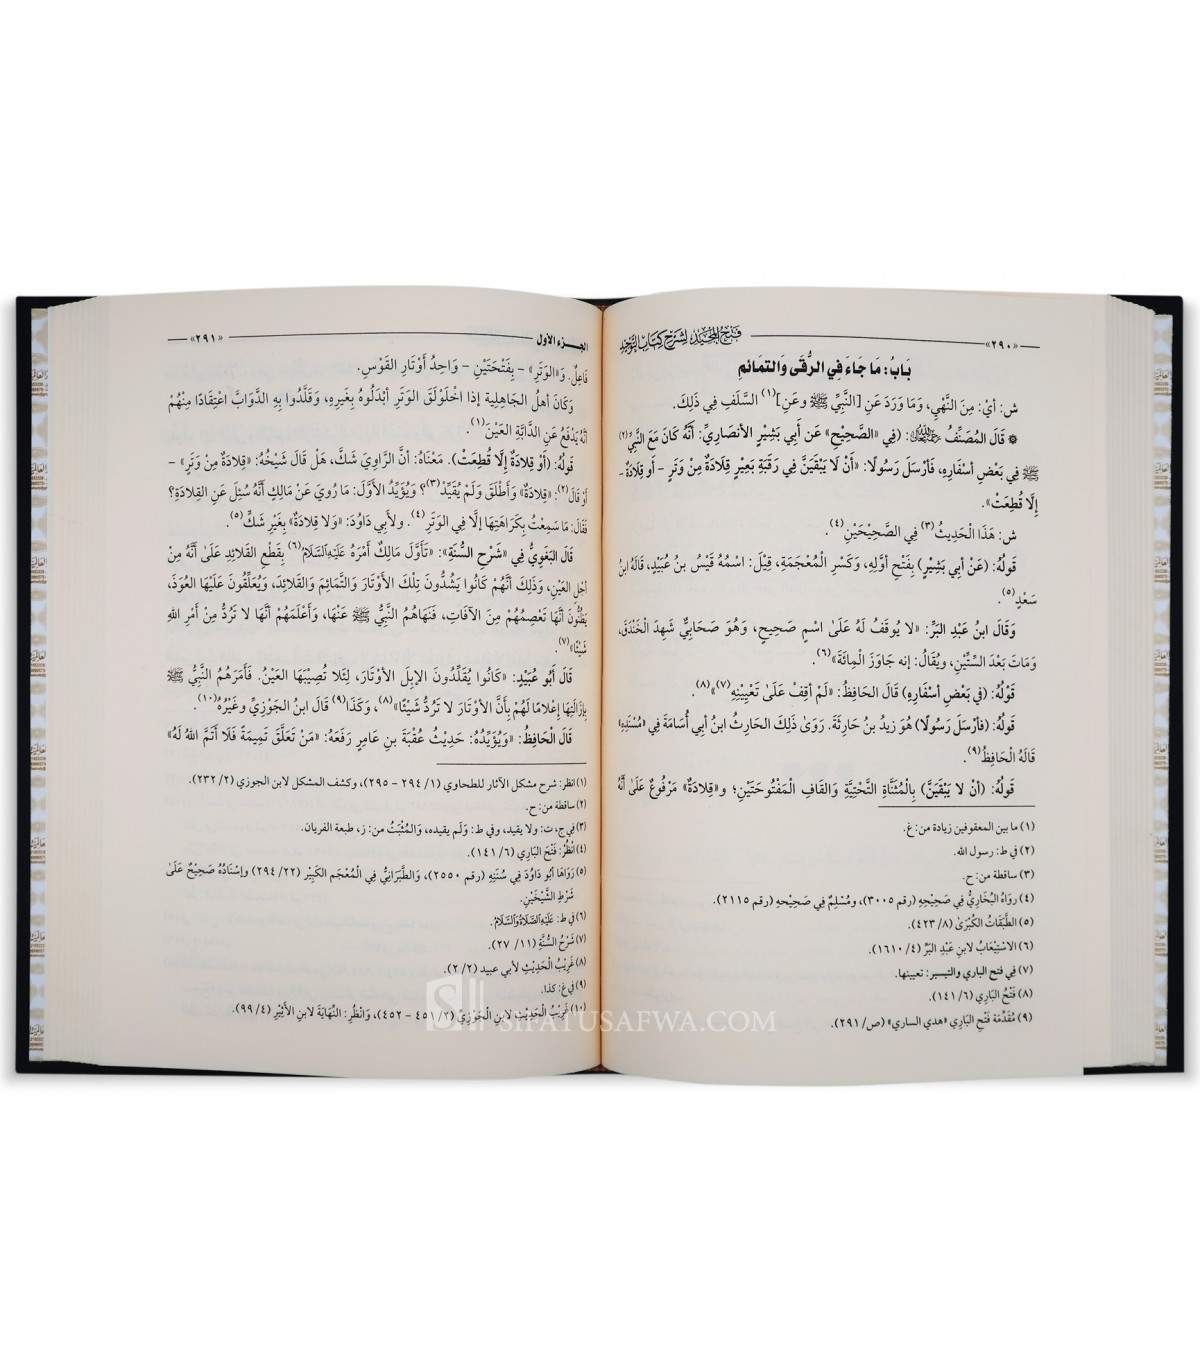 «٢٩٠» فتح المجيد لشرح كتاب التوحيد
بَابُ: مَا جَاءَ فِي الرُّقَى وَالتَّمَائِمِ
ش: أَيْ: مِنَ النَّهْيِ، وَمَا وَرَدَ عَنِ [النَّبِيِّ ﷺ وعَنِ](١) السَّلَفِ فِي ذَلِكَ.
۞ قَالَ المُصَنِّفُ رَحِمَهُ اللَّهُ: (فِي «الصَّحِيْحِ» عَن أَبِي بَشِيْرٍ الأَنصَارِيِّ: أَنَّهُ كَانَ مَعَ النَّبِيِّ(٢)
ﷺ فِي بَعْضِ أَسْفَارِهِ، فَأَرْسَلَ رَسُولًا: «أَنْ لَا يَبْقَيَنَّ فِي رَقَبَةِ بَعِيْرٍ قِلَادَةٌ مِنْ وَتَرٍ - أَو قِلَادَةٌ -
إِلَّا قُطِعَتْ».
ش: هَذَا الْحَدِيثُ(٣) فِي الصَّحِيْحَيْنِ(٤).
قَولُهُ: (عَنْ أَبِي بَشِيْرٍ) بِفَتْحِ أَوَّلِهِ، وَكَسْرِ الْمُعْجَمَةِ، قِيْلَ: اسْمُهُ قَيْسُ بنُ عُبَيْدٍ، قَالَهُ ابنُ
سَعْدٍ(٥).
وَقَالَ ابنُ عَبْدِ البَرِّ: «لَا يُوقَفُ لَهُ عَلَىٰ اسْمٍ صَحِيْحٍ، وَهُوَ صَحَابِيٌّ شَهِدَ الْخَنْدَقَ،
وَمَاتَ بَعْدَ السِّتِّيْنِ، وَيُقَالُ: إِنه جَاوَزَ الْمِائَةَ»(٦).
قَوْلُهُ: (فِي بَعْضِ أَسْفَارِهِ) قَالَ الحَافِظُ: «لَمْ أَقِفْ عَلَىٰ تَعْيِيْنِهِ(٧)»(٨).
قَولُهُ: (فَأَرْسَلَ رَسُولًا) هُوَ زَيدُ بنُ حَارِثَةَ. رَوَىٰ ذَلِكَ الحَارِثُ ابنُ أَبِي أُسَامَةَ فِي «مُسْنَدِهِ»
قَالَهُ الْحَافِظُ(٩).
قَولُهُ: (أَنْ لَا يَبْقَيَنَّ) بِالْمُثَنَّاةِ التَّحْتِيَّةِ وَالقَافِ الْمَفْتُوحَتَيْنِ؛ و«قِلَادَةٌ» مَرْفُوعٌ عَلَىٰ أَنَّهُ
(١) ما بين المعقوفين زيادة من: غ.
(٢) في ط: رسول الله.
(٣) ساقطة من: ح.
(٤) رَوَاهُ البُخَارِيُّ فِي صَحِيْحِهِ (رقم ٣٠٠٥)، ومُسْلِمٌ فِي صَحِيْحِهِ (رقم ٢١١٥).
(٥) الطَّبَقَاتُ الكُبْرَىٰ (٨/ ٤٢٣).
(٦) الاسْتِيْعَابُ لابنِ عَبْدِ البَرِّ (٤/ ١٦١٠).
(٧) في فتح الباري والتيسير: تعيينها.
(٨) فَتْحُ البَارِي (٦/ ١٤١).
(٩) مُقَدِّمَة فَتْحِ البَارِي «هدي الساري» (ص/ ٢٩١).
الجزء الأول «٢٩١»
فَاعِلٌ. وَ«الوَتَر» - بِفَتْحَتَيْنِ - وَاحِدُ أَوْتَارِ القَوْسِ.
وَكَانَ أَهلُ الجَاهِلِيةِ إِذَا اخْلَوْلَقَ الوَتَرُ أَبْدَلُوهُ بِغَيرِهِ، وَقَلَّدُوا بِهِ الدَّوَابَّ اعْتِقَادًا مِنْهُمْ
أَنَّهُ يَدْفَعُ عَنِ الدَّابَّةِ العَيْنَ(١).
قَولُهُ: (أَوْ قِلَادَةٌ إِلَّا قُطِعَتْ). مَعْنَاهُ: أَنَّ الرَّاوِيَ شَكَّ، هَلْ قَالَ شَيْخُهُ: «قِلَادَةٌ مِنْ وَتَرٍ» -
أَوْ قَالَ(٢): «قِلَادَةٌ» وَأَطْلَقَ وَلَمْ يُقَيِّدْ(٣)؟ وَيُؤَيِّدُ الأَوَّلَ: مَا رُوِيَ عَنْ مَالِكٍ أَنَّهُ سُئِلَ عَنِ القِلَادَةِ؟
فَقَالَ: مَا سَمِعْتُ بِكَرَاهَتِهَا إِلَّا فِي الوَتَرِ(٤). ولأَبِي دَاوُدَ: «وَلَا قِلَادَةٌ» بِغَيْرِ شَكٍّ(٥).
قَالَ البَغَوِيُّ فِي «شَرْحِ السُّنَةِ»: «تَأَوَّلَ مَالِكٌ أَمْرَهُ عَلَيْهِ السَّلَامُ(٦) بِقَطْعِ القَلَائِدِ عَلَىٰ أَنَّهُ مِنْ
أَجْلِ العَيْنِ، وَذَلِكَ أَنَّهُمْ كَانُوا يَشُدُّونَ تِلْكَ الأَوْتَارَ وَالتَّمَائِمَ وَالقَلَائِدَ، وَيُعَلِّقُونَ عَلَيْهَا العُوَذَ،
يَظُنُّونَ أَنَّهَا تَعْصِمُهُمْ مِنَ الآفَاتِ، فَنَهَاهُمُ النَّبِيُّ ﷺ عَنْهَا، وَأَعْلَمَهُمْ أَنَّهَا لَا تَرُدُّ مِنْ أَمْرِ اللهِ
شَيْئًا»(٧).
قَالَ أَبُو عُبَيْدٍ: «كَانُوا يُقَلِّدُونَ الإِبِلَ الأَوْتَارَ، لِئَلَّا تُصِيْبَهَا العَيْنُ. فَأَمَرَهُمُ النَّبِيُّ ﷺ
بِإِزَالَتِهَا إِعْلَامًا لَهُمْ بِأَنَّ الأَوْتَارَ لَا تَرُدُّ شَيْئًا»(٨)، وَكَذَا(٩) قَالَ ابنُ الجَوْزِيِّ وَغَيْرُهُ(١٠).
قَالَ الْحَافِظُ: «وَيُؤَيِّدُهُ: حَدِيْثُ عُقْبَةَ بنِ عَامِرٍ رَفَعَهُ: «مَنْ تَعَلَّقَ تَمِيْمَةً فَلَا أَتَمَّ اللهُ لَهُ»
(١) انظر: شرح مشكل الآثار للطحاوي (١/ ٢٩٤ - ٢٩٥)، وكشف المشكل لابن الجوزي (٢/ ٢٣٢).
(٢) ساقطة من: ح.
(٣) في ج، ت: ولا يقيد، وفي ط: وَلَم يقيده، وَالمُثْبَتُ من: ز، طبعة الفريان.
(٤) انْظُرْ: فَتْحَ البَارِي (٦/ ١٤١).
(٥) رَوَاهَا أَبُو دَاوُدَ فِي سُنَنِهِ (رقم ٢٥٥٠)، وَالطَّبَرَانِيُّ فِي الْمُعْجَمِ الكَبِيْرِ (٢٢/ ٢٩٤) وإِسْنَادُهُ صَحِيْحٌ عَلَىٰ
شَرْطِ الشَّيْخَيْنِ.
(٦) في ط: عَلَيْهِ الصَّلَاةُ وَالسَّلَامُ.
(٧) شَرْحُ السُّنَّةِ (١١/ ٢٧).
(٨) غَرِيْبُ الْحَدِيْثِ لأَبي عبيد (٢/ ٢).
(٩) في غ: كذا.
(١٠) غَرِيْبُ الْحَدِيْثِ لابنِ الْجَوْزِيِّ (٢/ ٤٥١ - ٤٥٢)، وَانْظُر: النِّهَايَةَ لابنِ الأَثِيْرِ (٤/ ٩٩).
SIFATUSAFWA.COM